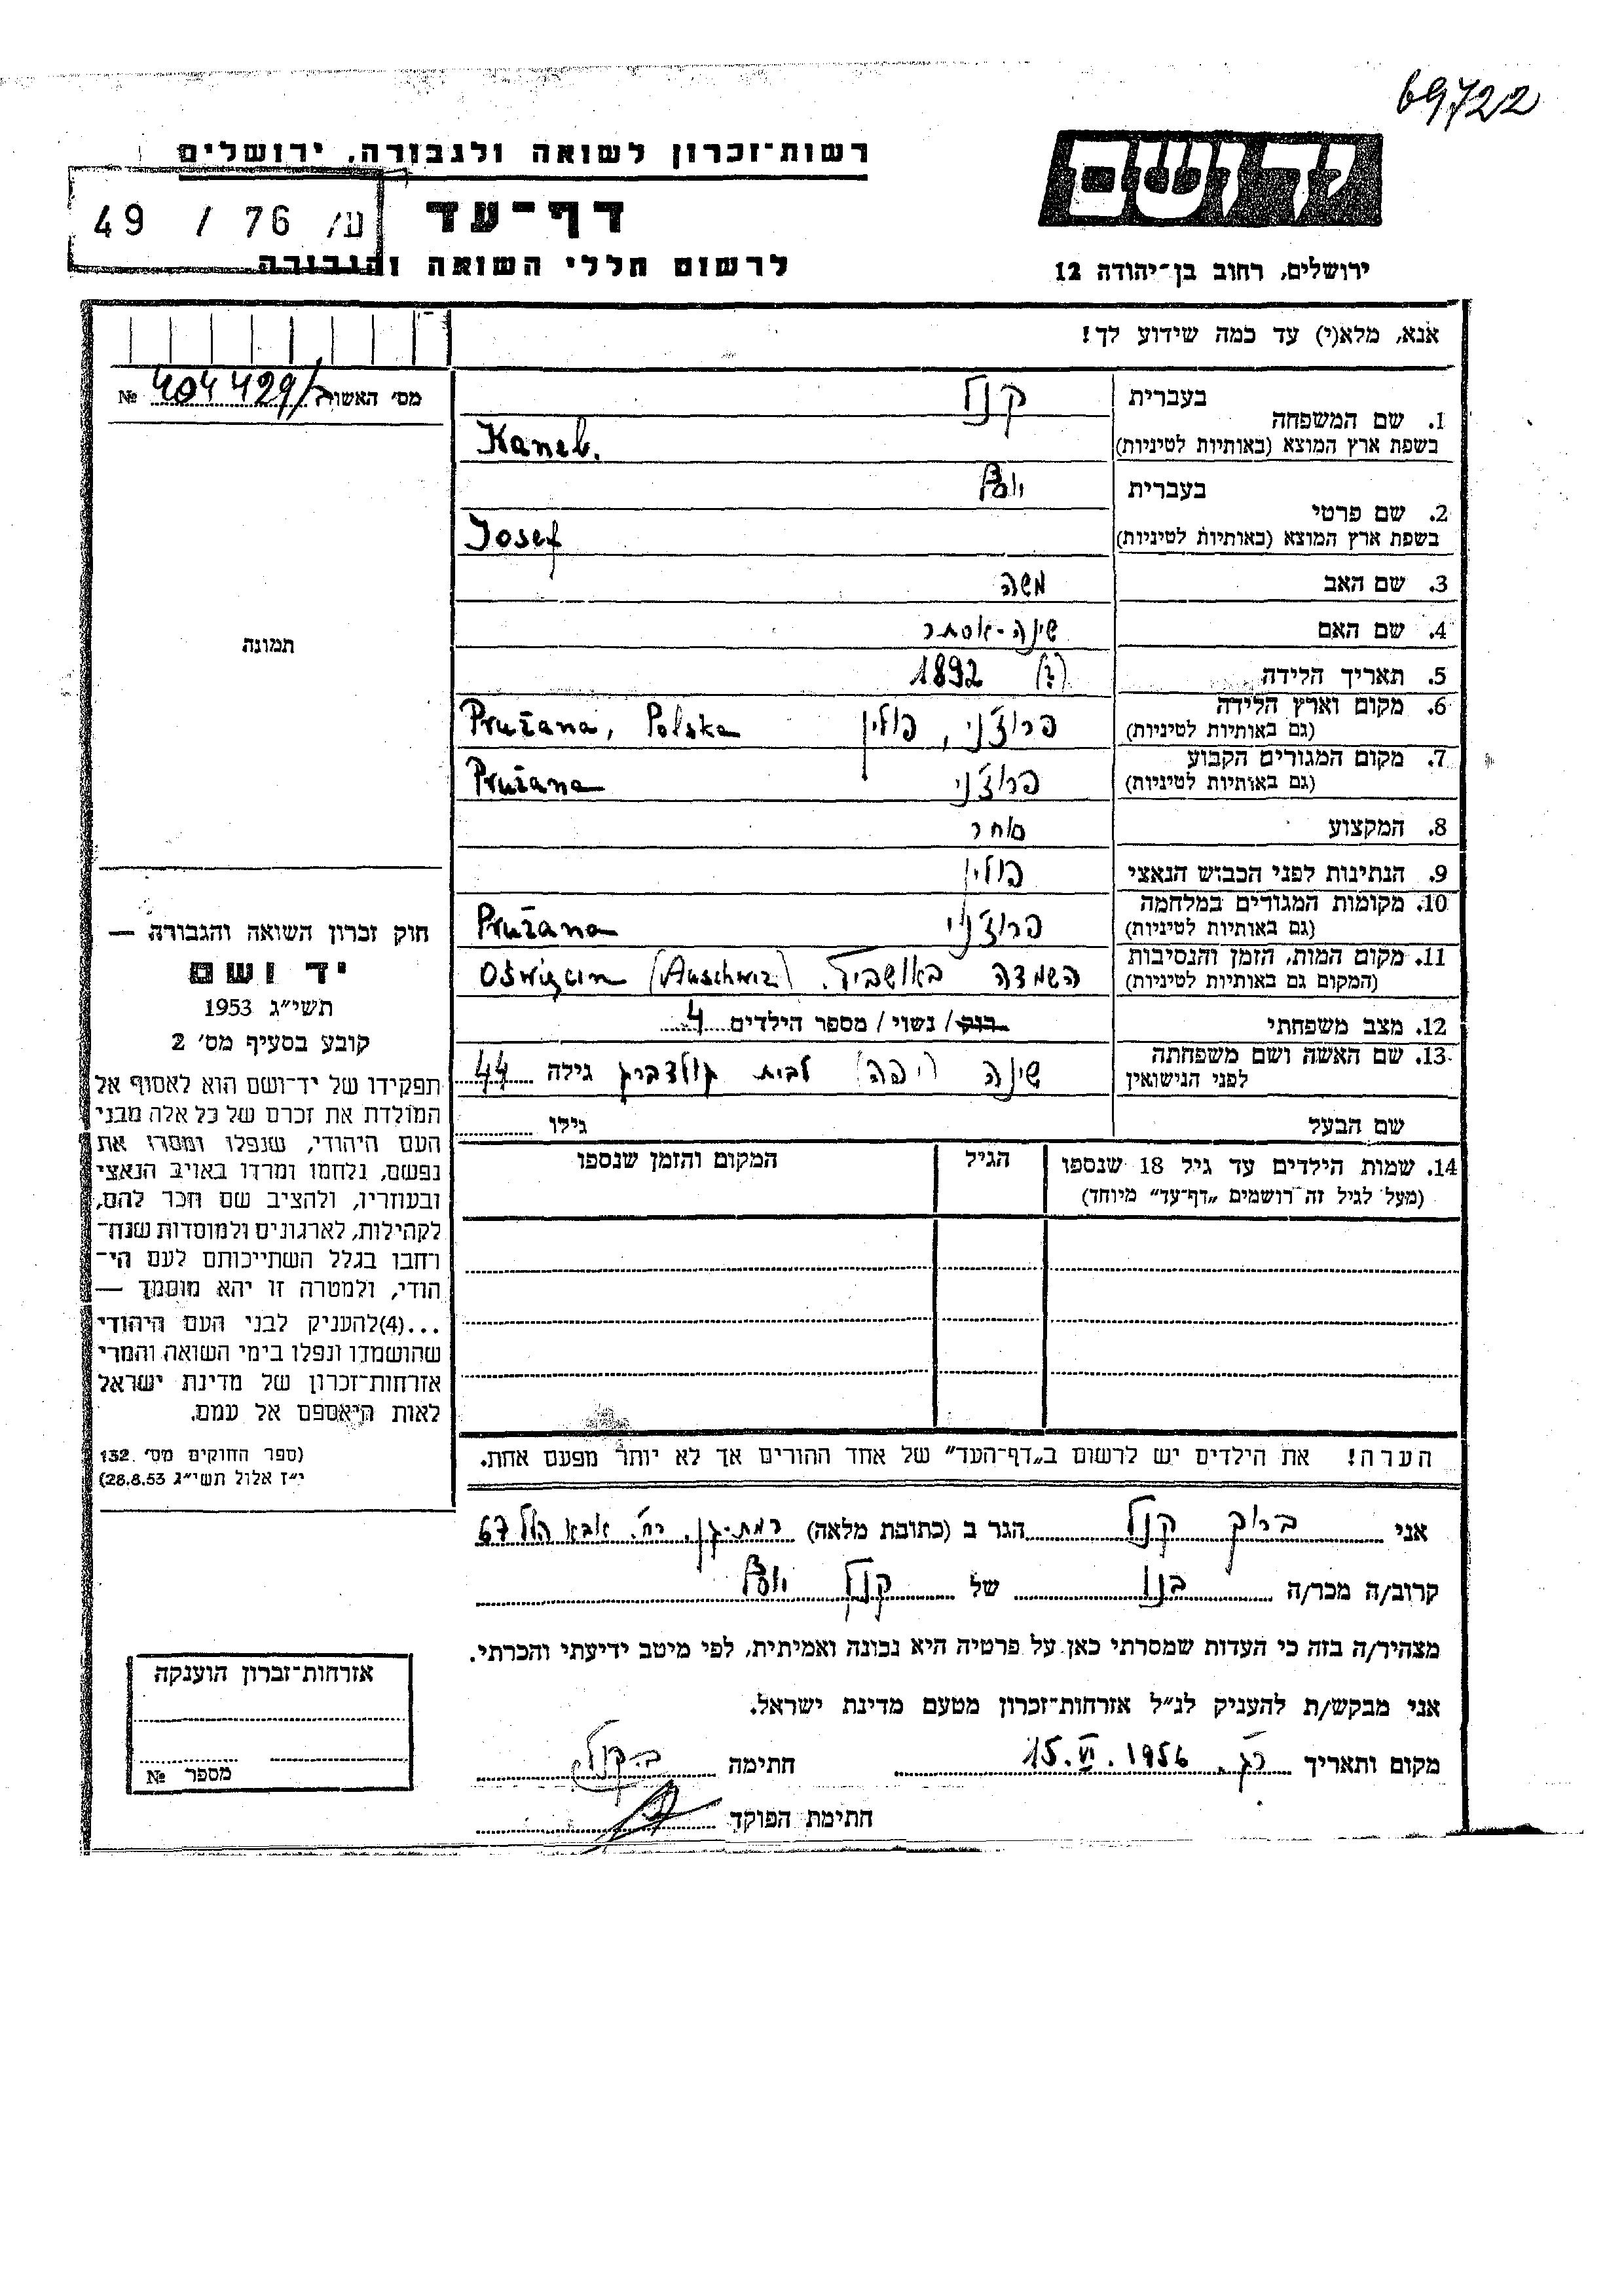 69722
ידושם
ירושלים, רחוב בן־יהודה 12
רשות־זכרון לשואה ולגבורה, ירושלים
דף־עד
לרשום חללי השואה והגבורה
49 / 76 /ע
אנא, מלא(י) עד כמה שידוע לך!
מס׳ האשור 404429/ №
תמונה
בעברית קנל
1. שם המשפחה
בשפת ארץ המוצא (באותיות לטיניות) Kanel.
בעברית יוסף
2. שם פרטי
בשפת ארץ המוצא (באותיות לטיניות) Josef
3. שם האב משה
4. שם האם שינה-אסתר
5. תאריך הלידה (?) 1892
6. מקום וארץ הלידה
(גם באותיות לטיניות) פרוז׳ני, פולין Prużana, Polska
7. מקום המגורים הקבוע
(גם באותיות לטיניות) פרוז׳ני Prużana
8. המקצוע סוחר
9. הנתינות לפני הכבוש הנאצי פולין
10. מקומות המגורים במלחמה
(גם באותיות לטיניות) פרוז׳ני Prużana
11. מקום המות, הזמן והנסיבות
(המקום גם באותיות לטיניות) השמדה באושביץ. Oświęcim (Auschwiz)
12. מצב משפחתי רווק / נשוי / מספר הילדים 4
13. שם האשה ושם משפחתה
לפני הנישואין שינה (יפה) לבית גולדברג גילה 44
שם הבעל גילו
14. שמות הילדים עד גיל 18 שנספו הגיל המקום והזמן שנספו
(מעל לגיל זה רושמים „דף־עד״ מיוחד)
הערה! את הילדים יש לרשום ב„דף־העד״ של אחד ההורים אך לא יותר מפעם אחת.
אני ברוך קנל הגר ב (כתובת מלאה) רמת-גן, רח׳ אבא הלל 67
קרוב/ה מכר/ה בנו של קנל יוסף
מצהיר/ה בזה כי העדות שמסרתי כאן על פרטיה היא נכונה ואמיתית, לפי מיטב ידיעתי והכרתי.
אני מבקש/ת להעניק לנ״ל אזרחות־זכרון מטעם מדינת ישראל.
מקום ותאריך רג. 15.VI.1956 חתימה ב. קנל
חתימת הפוקד
חוק זכרון השואה והגבורה —
יד ושם
תשי״ג 1953
קובע בסעיף מס׳ 2
תפקידו של יד־ושם הוא לאסוף אל
המולדת את זכרם של כל אלה מבני
העם היהודי, שנפלו ומסרו את
נפשם, נלחמו ומרדו באויב הנאצי
ובעוזריו, ולהציב שם וזכר להם,
לקהילות, לארגונים ולמוסדות שנח־
רחבו בגלל השתייכותם לעם הי־
הודי, ולמטרה זו יהא מוסמך —
...(4) להעניק לבני העם היהודי
שהושמדו ונפלו בימי השואה והמרי
אזרחות־זכרון של מדינת ישראל
לאות היאספם אל עמם.
(ספר החוקים מס׳ 132.
י״ז אלול תשי״ג 28.8.53)
אזרחות־זכרון הוענקה
מספר №